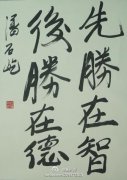 先勝在智
後勝在德
潘石屹